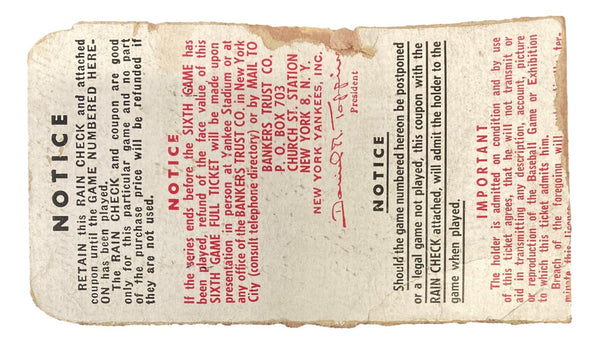 NOTICE
RETAIN this RAIN CHECK and attached
coupon until the GAME NUMBERED HERE-
ON has been played.
The RAIN CHECK and coupon are good
only for this particular game and no part
of the purchase price will be refunded if
they are not used.
NOTICE
If the series ends before the SIXTH GAME has
been played, refund of the face value, of this
SIXTH GAME FULL TICKET will be made upon
presentation in person at Yankee Stadium or at
any office of the BANKERS TRUST CO. in New York
City (consult telephone directory) or by MAIL TO
BANKERS TRUST CO.
P. O. BOX 703
CHURCH ST. STATION
NEW YORK 8, N. Y.
NEW YORK YANKEES, INC.
President
NOTICE
Should the game numbered hereon be postponed
or a legal game not played, this coupon with the
RAIN CHECK attached, will admit the holder to the
game when played.
IMPORTANT
The holder is admitted on condition and by use
of this ticket agrees, that he will not transmit or
aid in transmitting any description, account, picture
or reproduction of the Baseball Game or Exhibition
to which this ticket admits him.
Breach of the foregoing will
minate this license